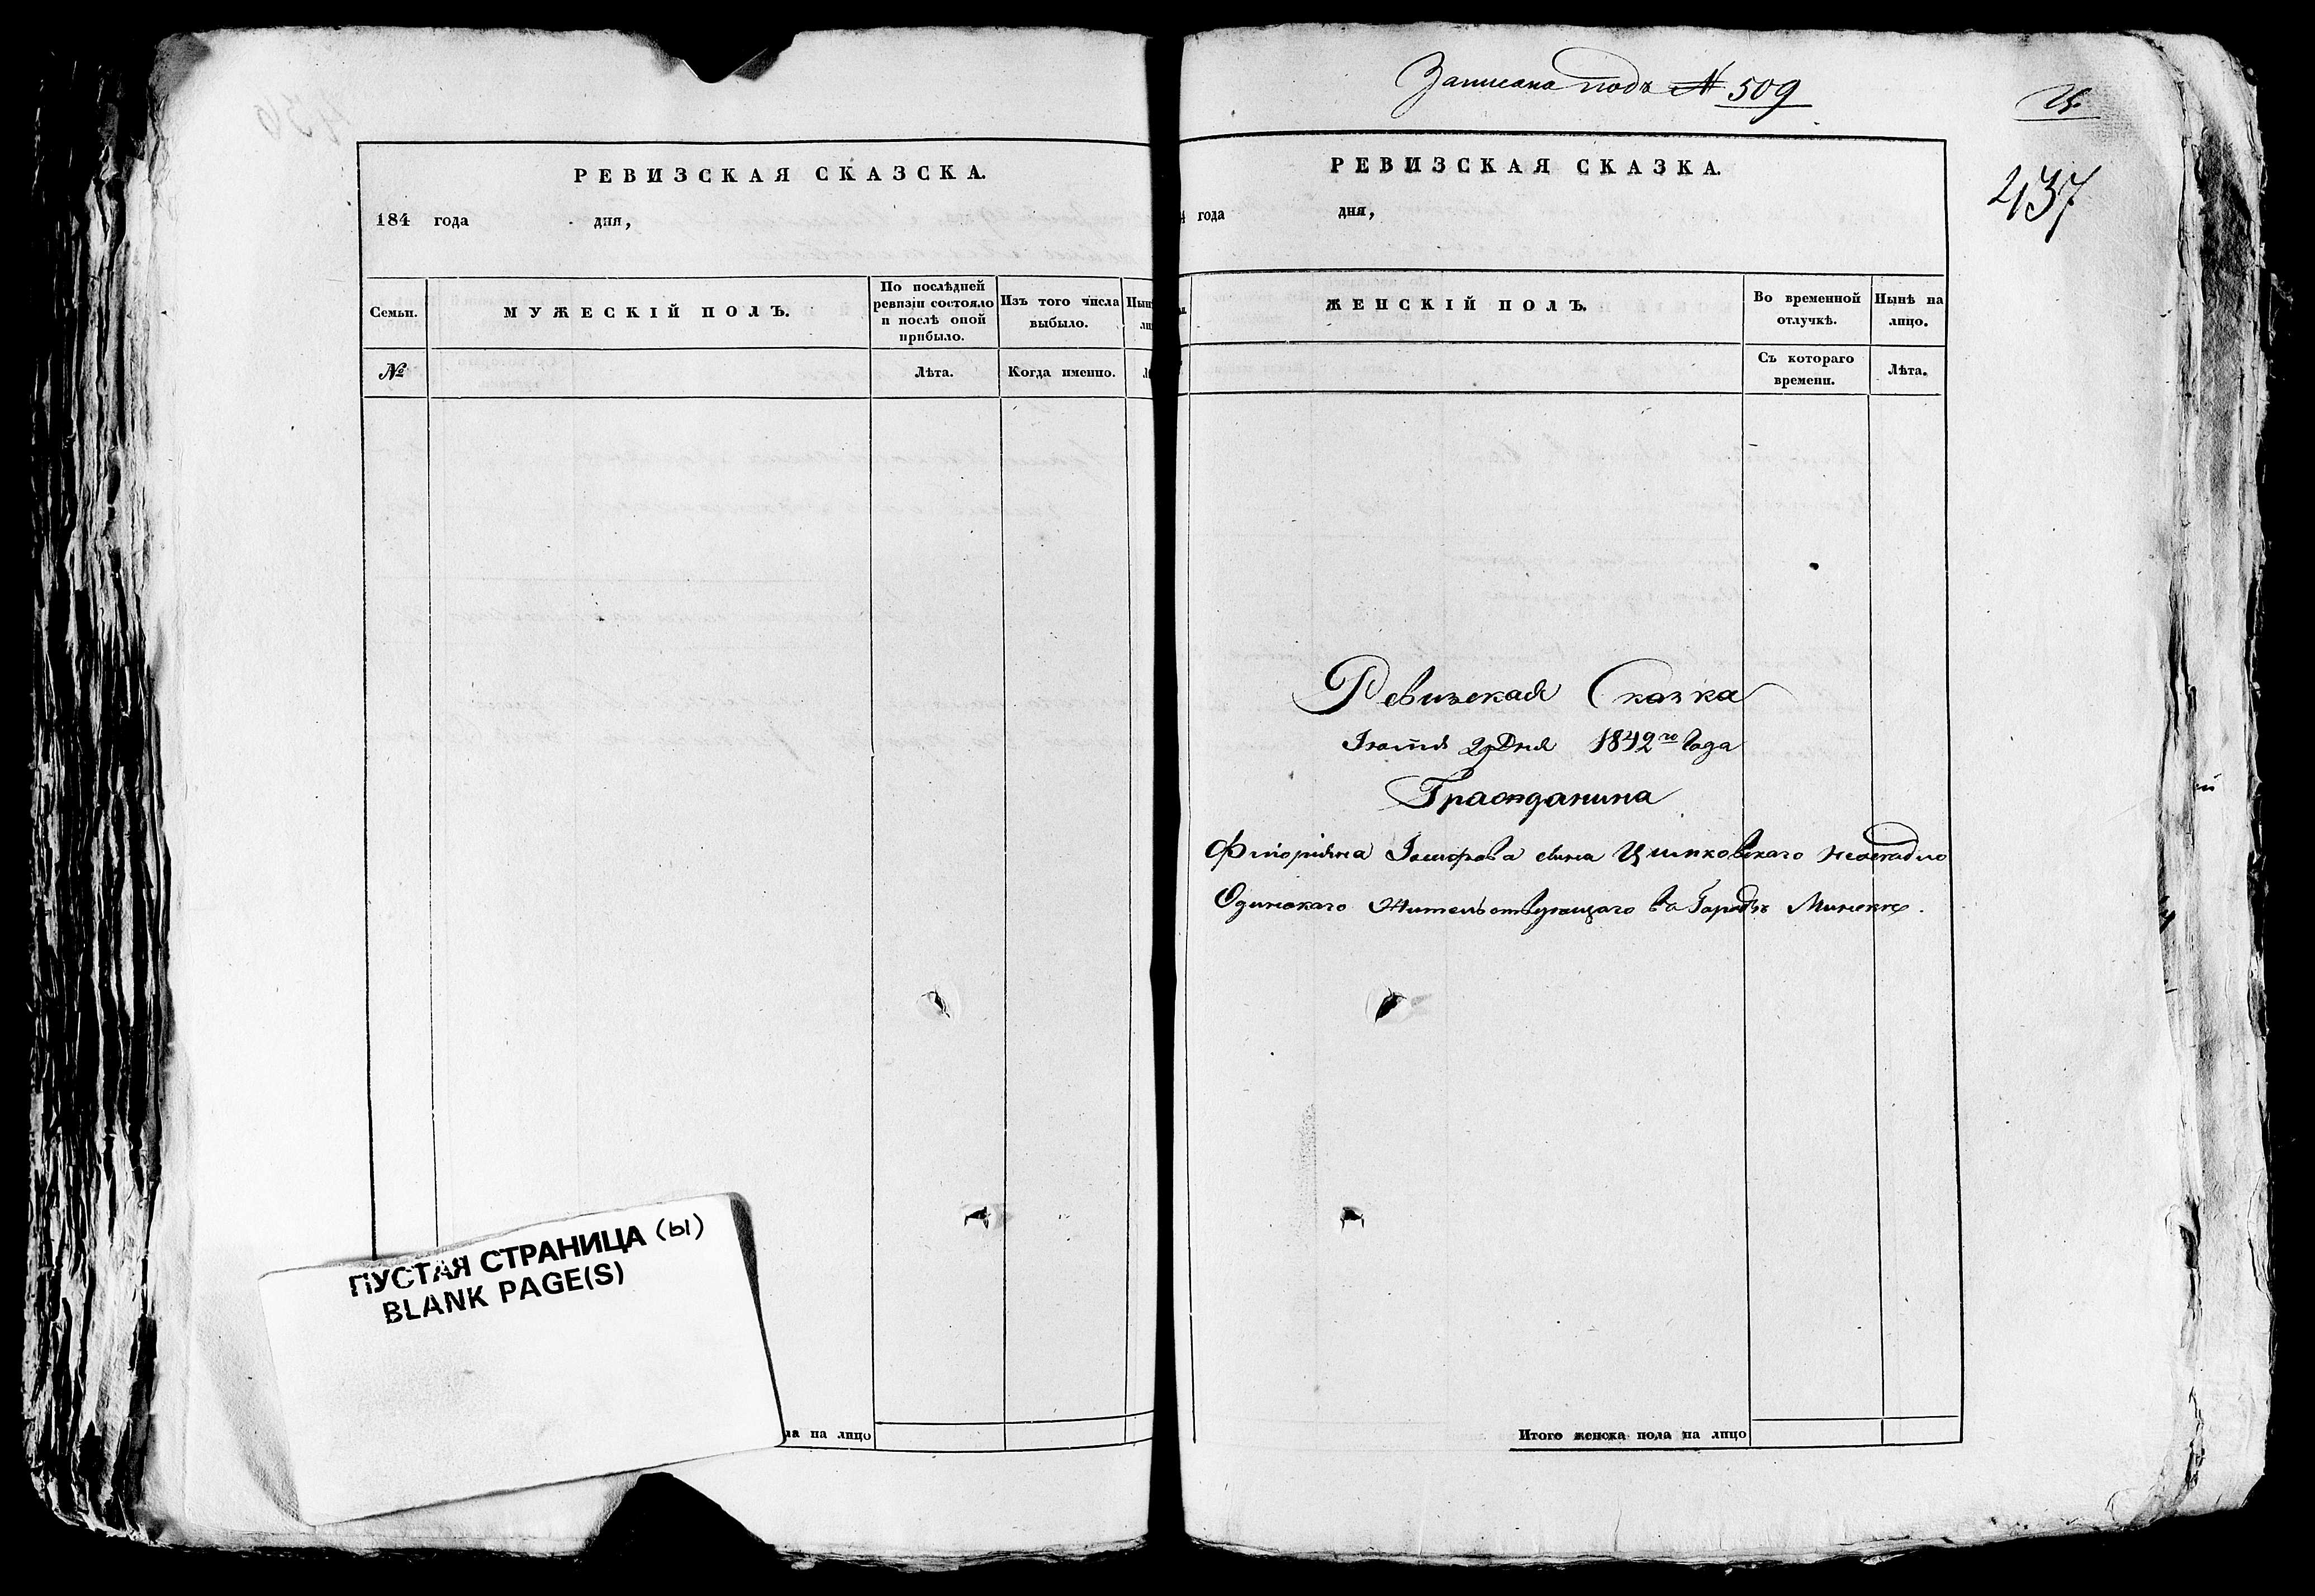 РЕВИЗСКАЯ СКАЗСКА.
184 года дня,
Семьи.
МУЖЕСКІЙ ПОЛЪ.
По послѣдней ревизіи состояло и послѣ оной прибыло.
Изъ того числа выбыло.
№
Лѣта.
Когда именно.
ла на лицо
ПУСТАЯ СТРАНИЦА (ы)
BLANK PAGE(S)
Записана подъ № 509
Ц.
437
РЕВИЗСКАЯ СКАЗКА.
года дня,
ЖЕНСКІЙ ПОЛЪ.
Во временной отлучкѣ.
Нынѣ на лицо.
Съ котораго времени.
Лѣта.
Ревизская Сказка
Іюня 29 Дня 1842го Года
Гражданина
Флоріяна сына
Одинокаго Жительствующаго въ Городѣ Минскѣ.
Итого женска пола на лицо